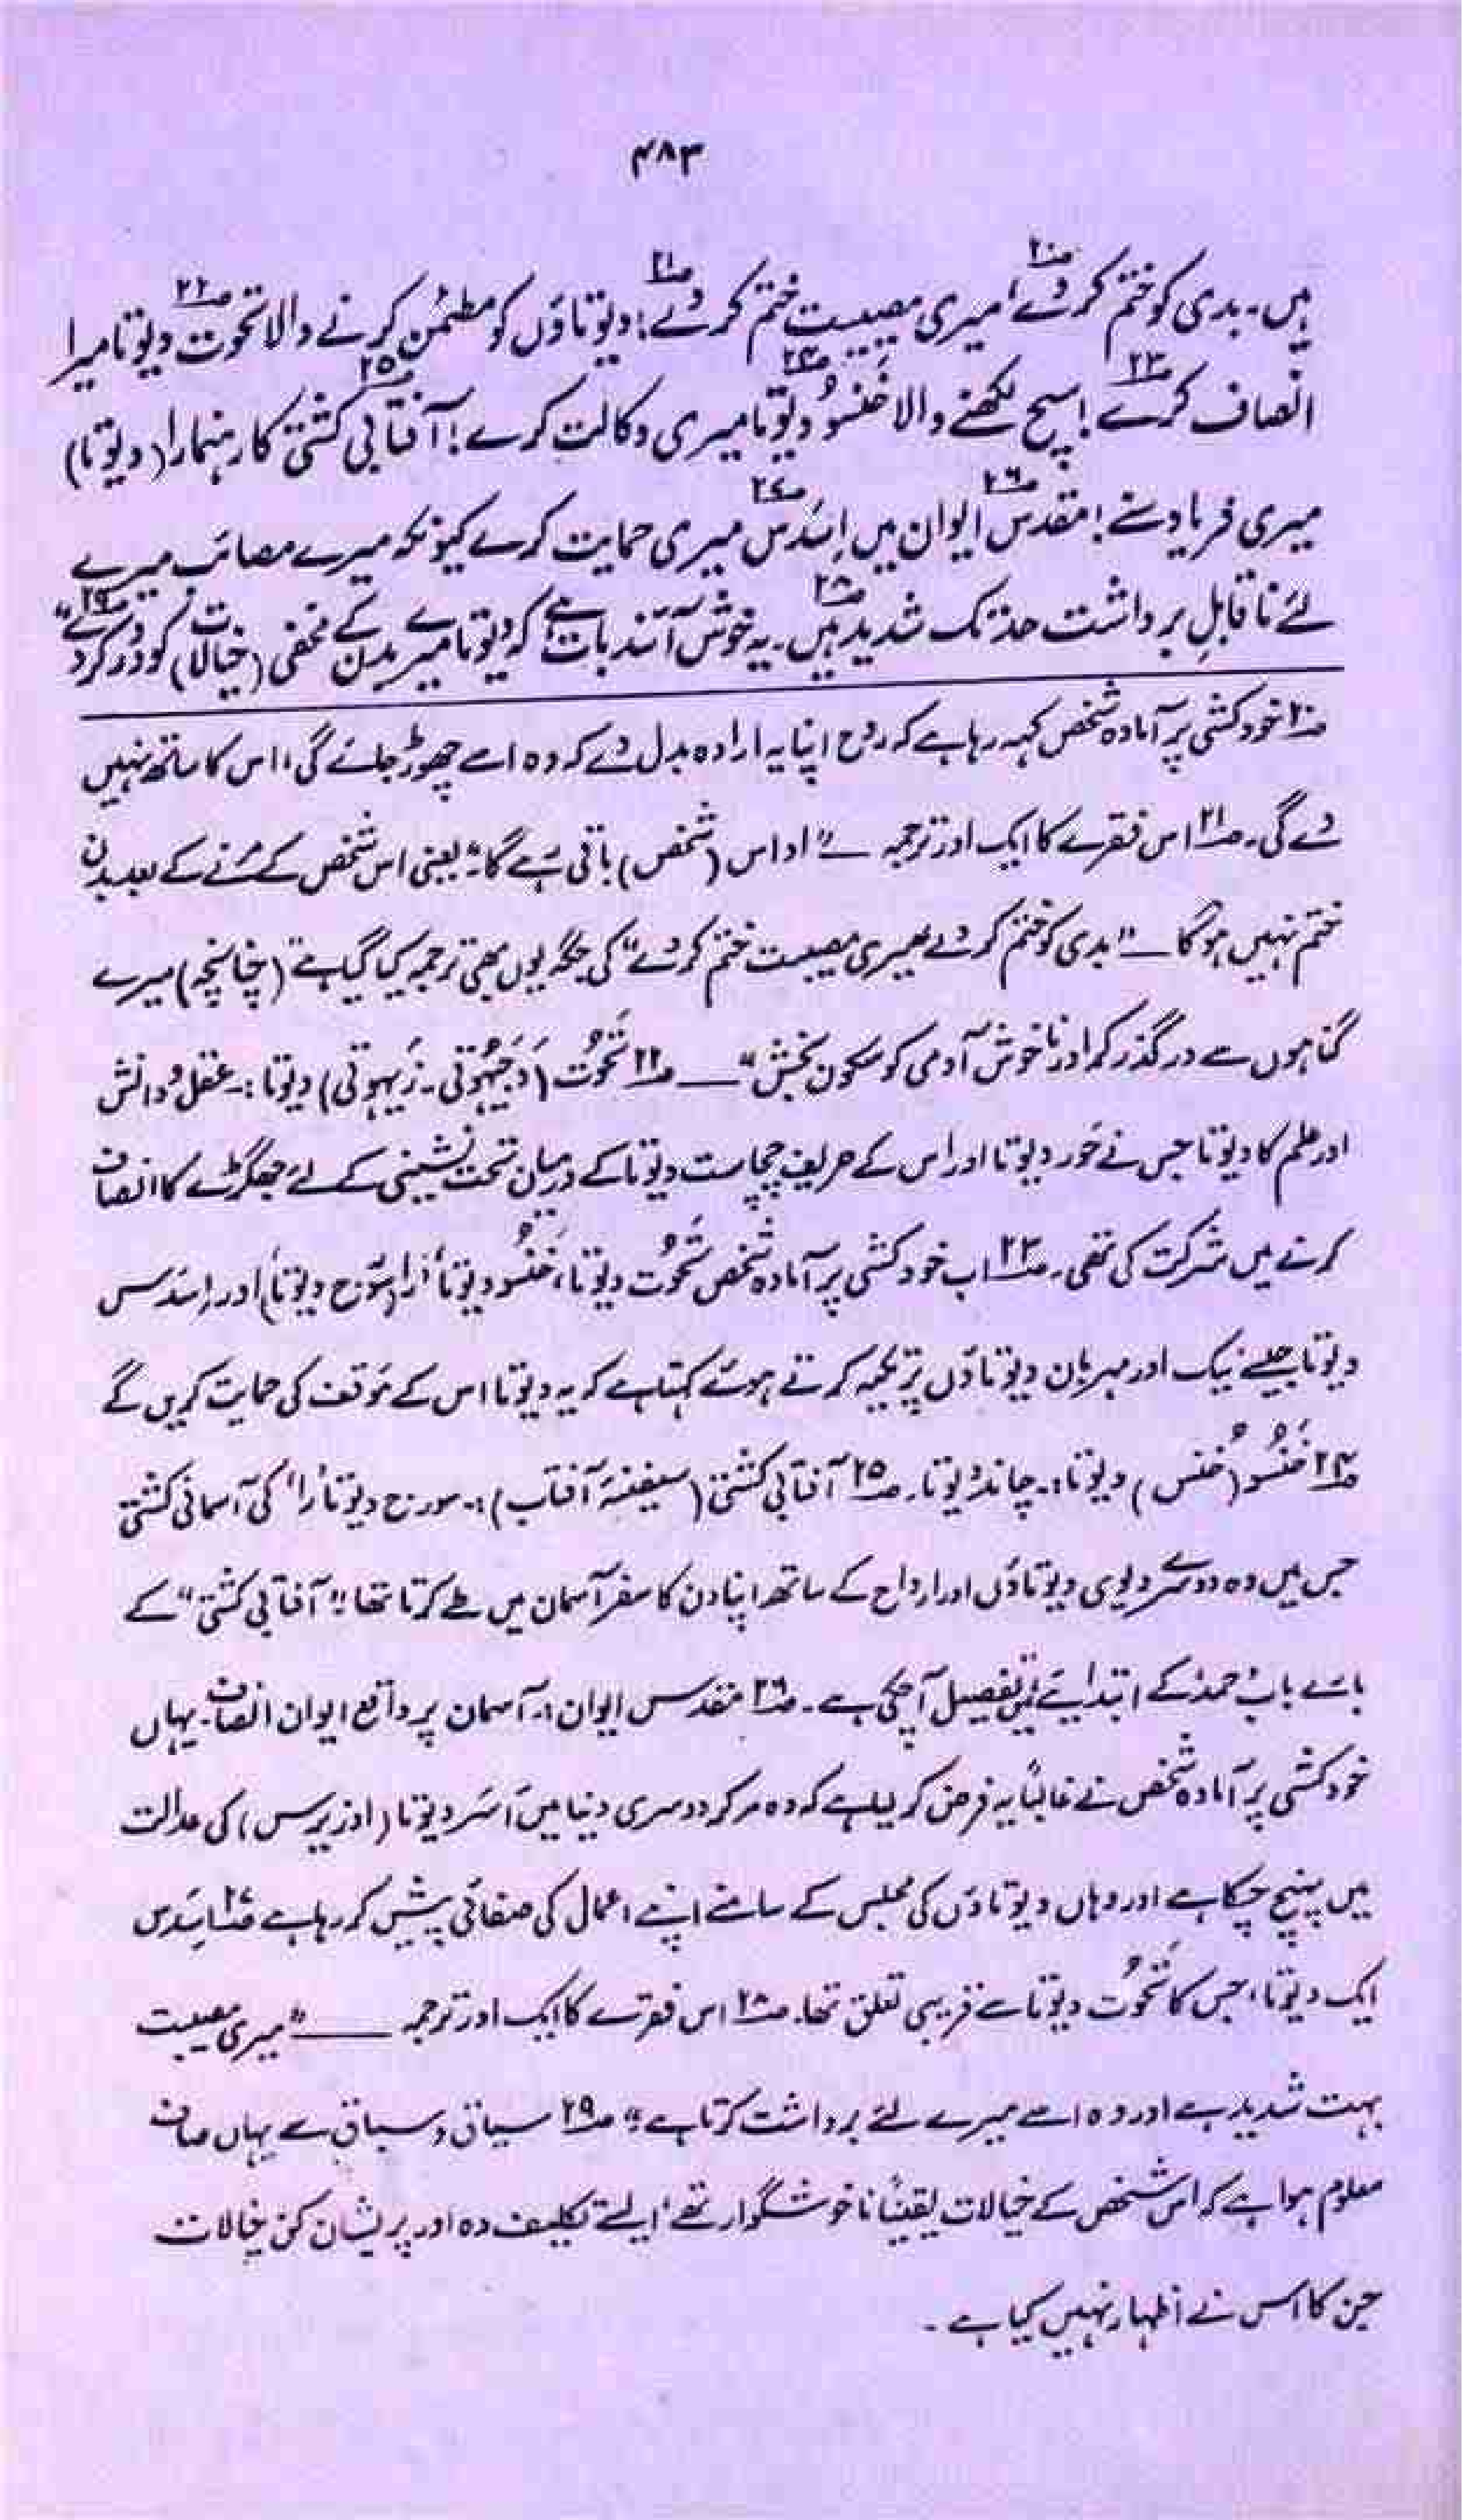 ۴۸۳
ہیں۔ بدی کو ختم کر دے،۲۰ میری مصیبت ختم کر دے!۲۱ دیوتاؤں کو مطمئن کرنے والا تحوت۲۲ دیوتا میرا
انصاف کرے!۲۳ سچ لکھنے والا خُنسُو۲۴ دیوتا میری وکالت کرے! آفتابی کشتی۲۵ کا رہنما را (دیوتا)
میری فریاد سنے! مقدس ایوان۲۶ میں اِسَدس۲۷ میری حمایت کرے کیونکہ میرے مصائب میرے
لئے ناقابلِ برداشت حد تک شدید ہیں۔۲۸ یہ خوش آئند بات ہے کہ دیوتا میرے بدن کے مخفی (خیالات) کو دُور کر دے۲۹"
۲۰ خودکشی پر آمادہ شخص کہہ رہا ہے کہ روح اپنا یہ ارادہ بدل دے کہ وہ اسے چھوڑ جائے گی، اس کا ساتھ نہیں
دے گی۔ ۲۱ اس فقرے کا ایک اور ترجمہ ــ "اداس (شخص) باقی رہے گا" یعنی اس شخص کے مرنے کے بعد بدن
ختم نہیں ہوگا ــ "بدی کو ختم کر دے میری مصیبت ختم کر دے" کی جگہ یوں بھی ترجمہ کیا گیا ہے "(چنانچہ) میرے
گناہوں سے درگذر کر اور ناخوش آدمی کو سکون بخش" ــ ۲۲ تحُوت (دَجَہُوتی۔ زَیہوتی) دیوتا:۔ عقل و دانش
اور علم کا دیوتا جس نے حور دیوتا اور اس کے حریف چچا ست دیوتا کے درمیان تخت نشینی کے لئے جھگڑے کا انصاف
کرنے میں شرکت کی تھی۔ ۲۳ اب خودکشی پر آمادہ شخص تحُوت دیوتا، خُنسُو دیوتا، را (سورج دیوتا) اور اِسَدس
دیوتا جیسے نیک اور مہربان دیوتاؤں پر تکیہ کرتے ہوئے کہتا ہے کہ یہ دیوتا اس کے موقف کی حمایت کریں گے
۲۴ خُنسُو (خنس) دیوتا:۔ چاند دیوتا۔ ۲۵ آفتابی کشتی (سفینۂ آفتاب):۔ سورج دیوتا 'را' کی آسمانی کشتی
جس میں وہ دوسرے دیوی دیوتاؤں اور ارواح کے ساتھ اپنا دن کا سفر آسمان میں طے کرتا تھا۔ "آفتابی کشتی" کے
بارے باب 'حمد' کے ابتدائیے میں تفصیل آ چکی ہے۔ ۲۶ مقدس ایوان:۔ آسمان پر واقع ایوان انصاف۔ یہاں
خودکشی پر آمادہ شخص نے غالباً یہ فرض کر لیا ہے کہ وہ مر کر دوسری دنیا میں اَسَر دیوتا (اوزیرس) کی عدالت
میں پہنچ چکا ہے اور وہاں دیوتاؤں کی مجلس کے سامنے اپنے اعمال کی صفائی پیش کر رہا ہے ۲۷ اِسَدس
ایک دیوتا، جس کا تحُوت دیوتا سے قریبی تعلق تھا۔ ۲۸ اس فقرے کا ایک اور ترجمہ ــــ "میری مصیبت
بہت شدید ہے اور وہ اسے میرے لئے برداشت کرتا ہے" ۲۹ سیاق و سباق سے یہاں صاف
معلوم ہوا ہے کہ اس شخص کے خیالات یقیناً ناخوشگوار تھے، ایسے تکلیف دہ اور پریشان کن خیالات
جن کا اس نے اظہار نہیں کیا ہے۔